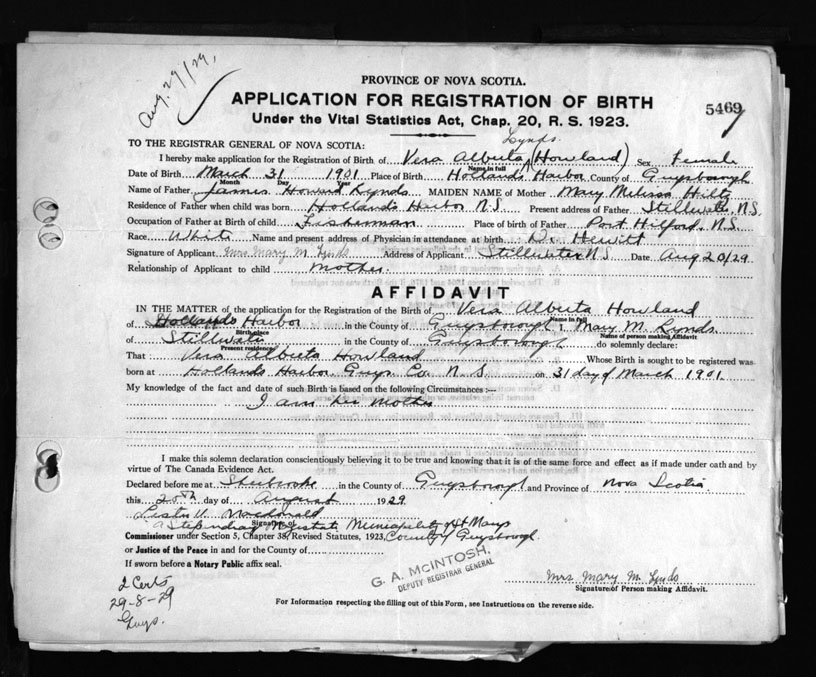 Aug. 27/29,
PROVINCE OF NOVA SCOTIA.
APPLICATION FOR REGISTRATION OF BIRTH
5469
Under the Vital Statistics Act, Chap. 20, R. S. 1923.
TO THE REGISTRAR GENERAL OF NOVA SCOTIA:
Lynds
I hereby make application for the Registration of Birth of Vera Alberta (Howland) Sex Female
Name in full
Date of Birth March 31 1901 Place of Birth Hollands Harbor County of Guysborough
Month Day Year
Name of Father James Howard Lynds MAIDEN NAME of Mother Mary Melissa Hiltz
Residence of Father when child was born Hollands Harbor N.S. Present address of Father Stillwater N.S.
Occupation of Father at Birth of child Fisherman Place of birth of Father Port Hilford, N.S.
Race White Name and present address of Physician in attendance at birth Dr. Hewitt
Signature of Applicant Mrs Mary M. Lynds Address of Applicant Stillwater N S Date Aug 20/29
Relationship of Applicant to child mother.
AFFIDAVIT
IN THE MATTER of the application for the Registration of the Birth of Vera Alberta Howland
Name in full
of Hollands Harbor in the County of Guysborough I, Mary M. Lynds
Birth place Name of person making Affidavit
of Stillwater in the County of Guysborough do solemnly declare:
Present residence
That Vera Alberta Howland Whose Birth is sought to be registered was
born at Hollands Harbor Guys Co. N. S. on 31 day of March 1901.
My knowledge of the fact and date of such Birth is based on the following Circumstances :—
I am her mother
I make this solemn declaration conscientiously believing it to be true and knowing that it is of the same force and effect as if made under oath and by
virtue of The Canada Evidence Act.
Declared before me at Sherbrooke in the County of Guysborough and Province of Nova Scotia
this 20th day of August 1929
Macdonald
Signature of
a Stipendiary Magistrate Municipality of St Marys
Commissioner under Section 5, Chapter 38, Revised Statutes, 1923, County of Guysborough.
or Justice of the Peace in and for the County of
If sworn before a Notary Public affix seal.
G. A. McINTOSH,
DEPUTY REGISTRAR GENERAL
Mrs Mary M. Lynds
Signature of Person making Affidavit.
2 Certs
29-8-29
Guys.
For Information respecting the filling out of this Form, see Instructions on the reverse side.